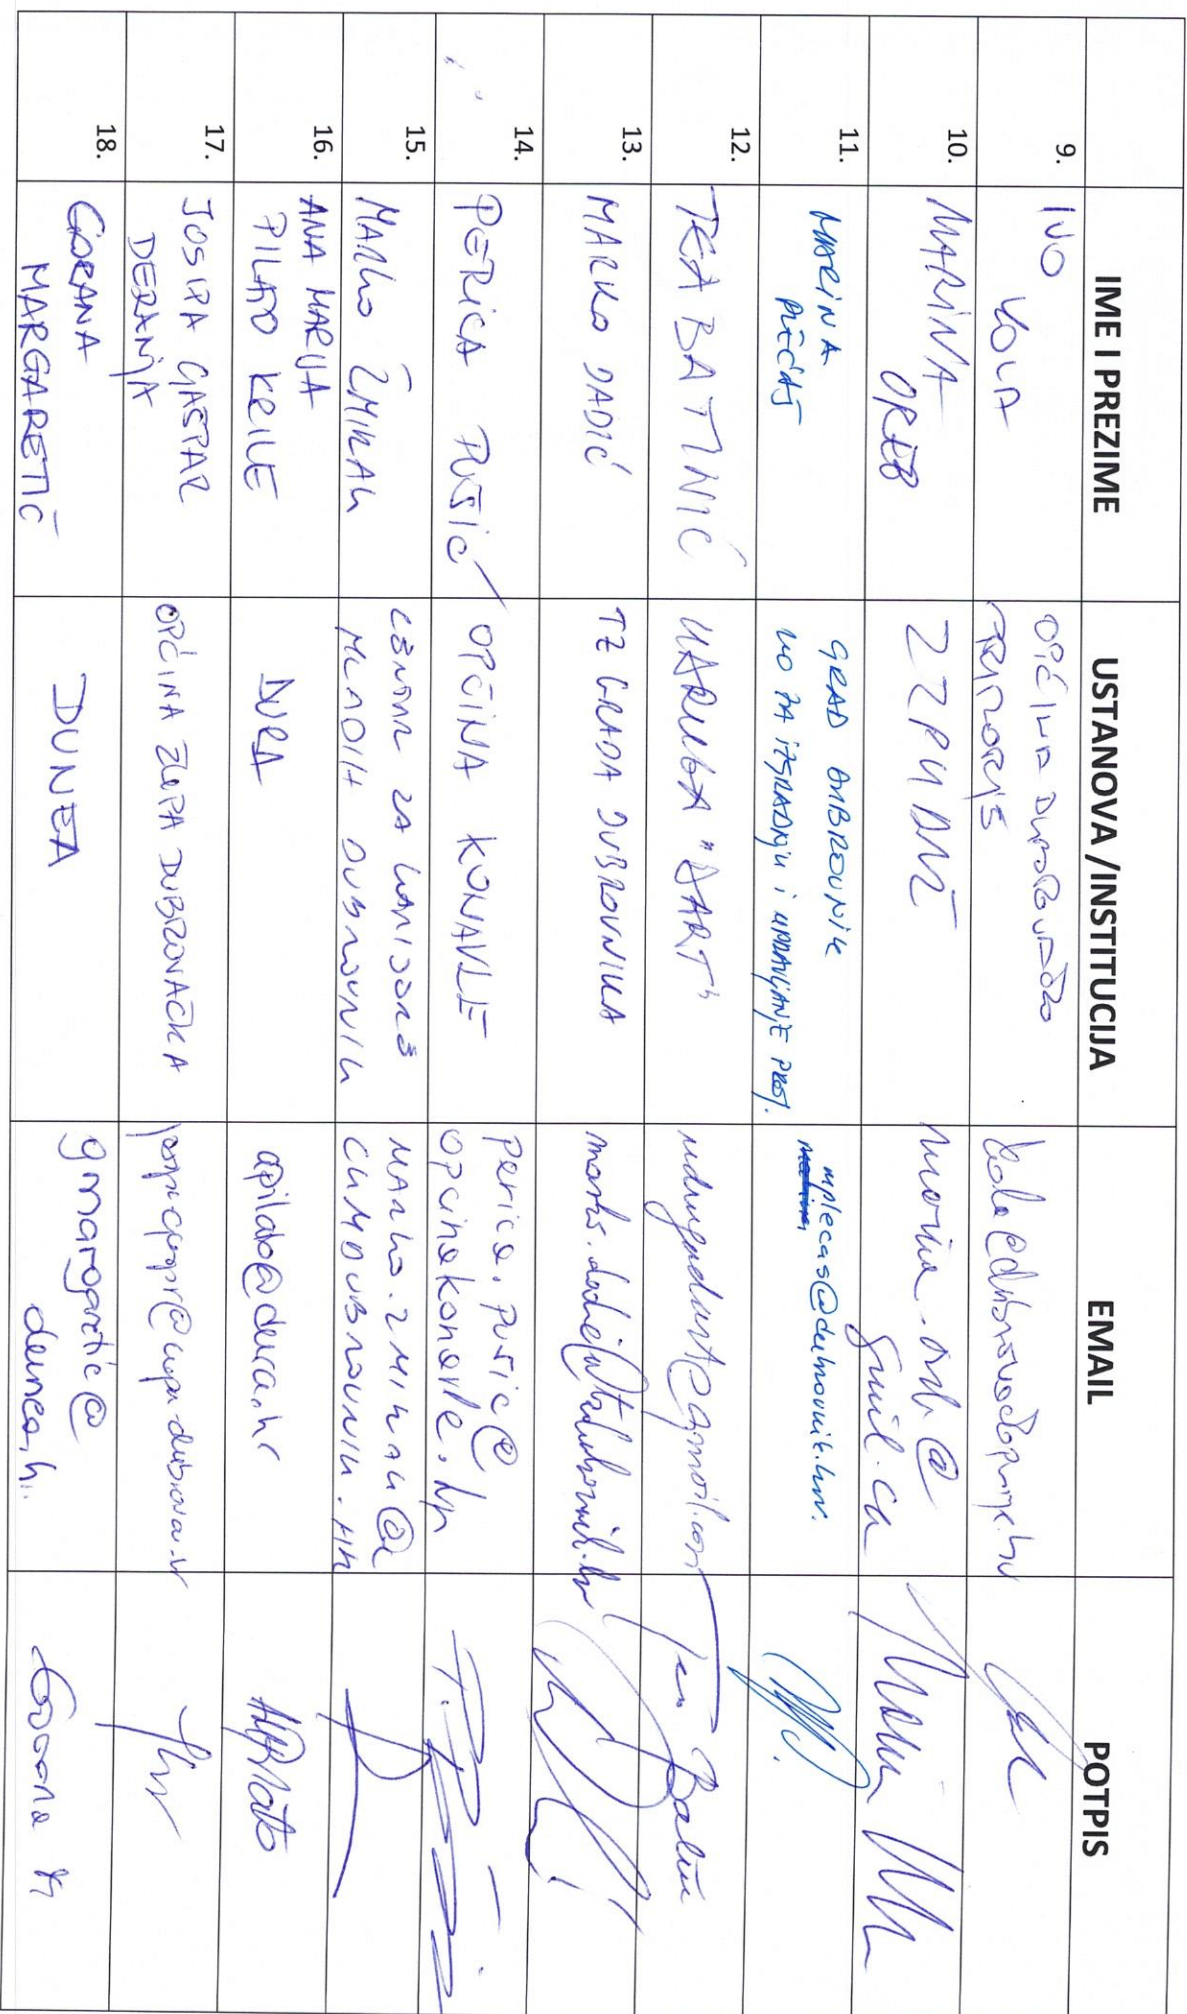 IME I PREZIME USTANOVA /INSTITUCIJA EMAIL POTPIS
9. IVO KOLA OPĆINA DUBROVAČKO
PRIMORJE
10. MARINA
OREB ZZPUDNŽ marina.oreb@
gmail.com
11. MARINA
PLEĆAŠ GRAD DUBROVNIK
UO ZA IZGRADNJU I UPRAVLJANJE PROJ. mplecas@dubrovnik.hr.
12. TEA BATINIĆ UDRUGA "DART" udrugadart@gmail.com Tea Batinić
13. MARKO DADIĆ TZ GRADA DUBROVNIKA marko.dadic@tzdubrovnik.hr
14. PERICA PUŠIĆ OPĆINA KONAVLE perica.pusic@
opcinakonavle.hr
15. MARKO ŽMIKAN CENTAR ZA
MLADIH DUBROVNIK
16. ANA MARIJA
PILATO KRILE DURA apilato@dura.hr AMPilato
17. JOSIPA GAŠPAR
DERANJA OPĆINA ŽUPA DUBROVAČKA
18. GORANA
MARGARETIĆ DUNEA gmargaretic@
dunea.hr Gorana M